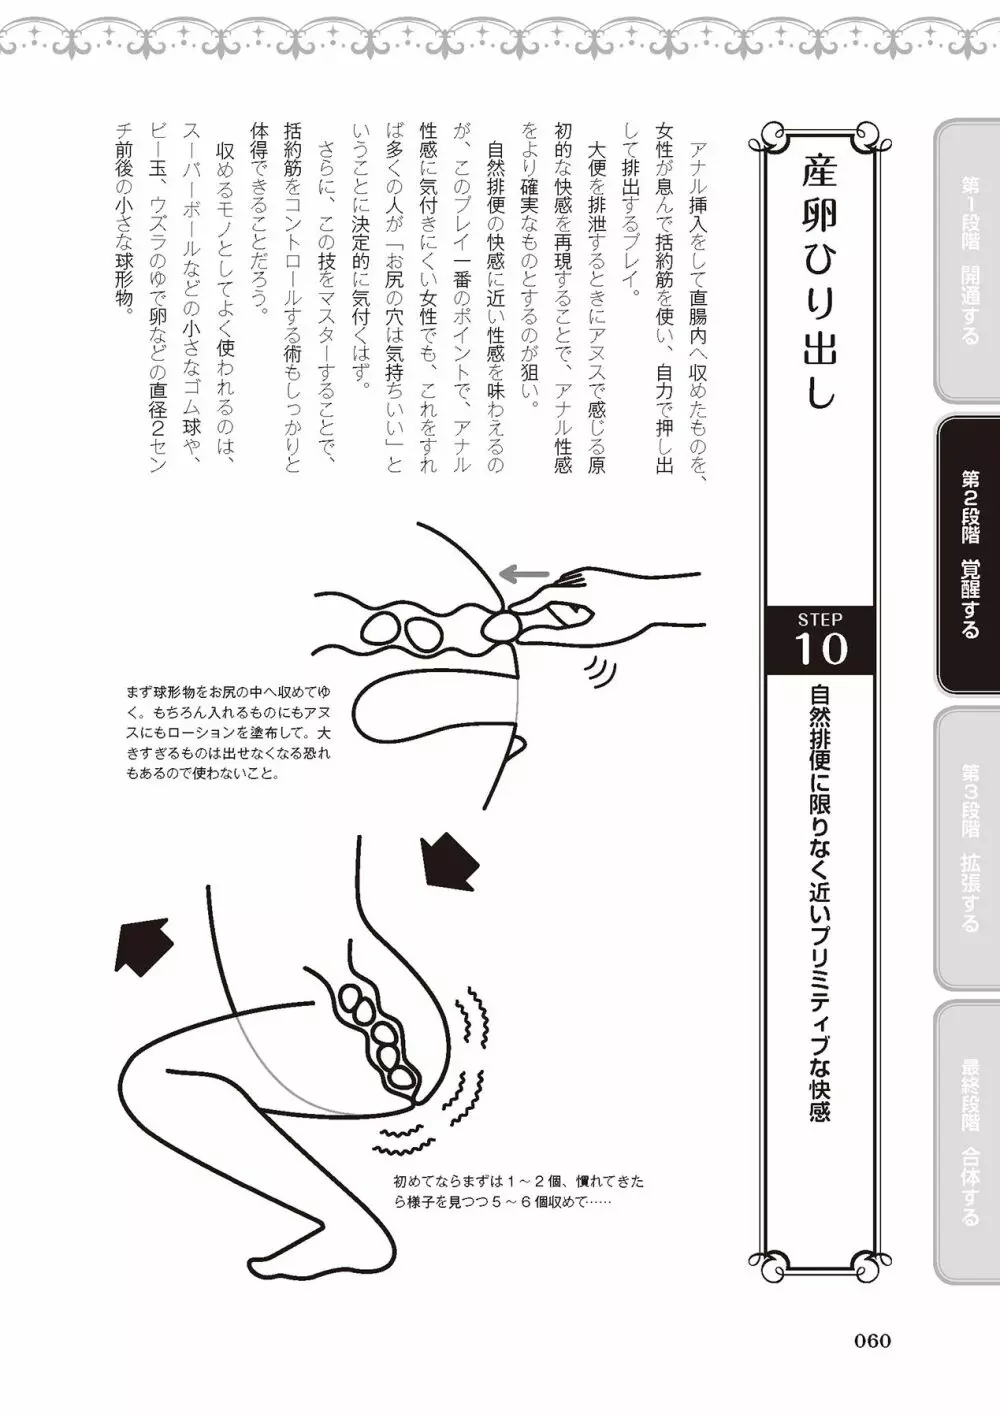 産卵ひり出し
STEP
10
自然排便に限りなく近いプリミティブな快感
アナル挿入をして直腸内へ収めたものを、
女性が息んで括約筋を使い、自力で押し出
して排出するプレイ。
大便を排泄するときにアヌスで感じる原
初的な快感を再現することで、アナル性感
をより確実なものとするのが狙い。
自然排便の快感に近い性感を味わえるの
が、このプレイ一番のポイントで、アナル
性感に気付きにくい女性でも、これをすれ
ば多くの人が「お尻の穴は気持ちいい」と
いうことに決定的に気付くはず。
さらに、この技をマスターすることで、
括約筋をコントロールする術もしっかりと
体得できることだろう。
収めるモノとしてよく使われるのは、
スーパーボールなどの小さなゴム球や、
ビー玉、ウズラのゆで卵などの直径2セン
チ前後の小さな球形物。
まず球形物をお尻の中へ収めてゆ
く。もちろん入れるものにもアヌ
スにもローションを塗布して。大
きすぎるものは出せなくなる恐れ
もあるので使わないこと。
初めてならまずは1〜2個、慣れてきた
ら様子を見つつ5〜6個収めて……
第1段階 開通する
第2段階 覚醒する
第3段階 拡張する
最終段階 合体する
060